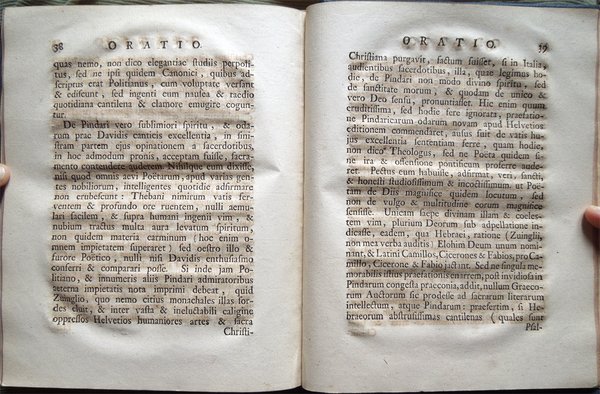 38 ORATIO.
quas nemo, non dico elegantiæ studiis perpoli-
tus, sed ne ipsi quidem Canonici, quibus ad-
scriptus erat Politianus, cum voluptate versant
& ediscunt, sed ingenti cum mulca & tædio
quotidiana cantilena & clamore emugire cogun-
tur.
De Pindari vero sublimiori spiritu, & oda-
rum præ Davidis canticis excellentia, in sini-
stram partem ejus opinationem a sacerdotibus,
in hoc admodum pronis, acceptam fuisse, sacra-
mento contendere auderem Nihilque eum dixisse,
nisi quod omnis ævi Poëtarum, apud varias gen-
tes nobiliorum, intelligentes quotidie adfirmare
non erubescunt: Thebani nimirum vatis fer-
ventem & profundo ore ruentem, nulli æmu-
lari facilem, & supra humani ingenii vim, &
nubium tractus multa aura levatum spiritum,
non quidem materia carminum (hoc enim o-
mnem impietatem superaret) sed œstro illo &
furore Poëtico, nulli nisi Davidis enthusiasmo
conferri & comparari posse. Si inde jam Po-
litiano, & innumeris aliis Pindari admiratoribus
tetetria impietatis nota imprimi debeat, quid
Zuinglio, quo nemo citius monachales illas for-
des eluit, & inter vasta & ineluctabili caligine
oppressos Helvetios humaniores artes & sacra
Christi-
ORATIO. 39
Christiana purgavit, factum fuisset, si in Italia,
audientibus sacerdotibus, illa, quæ legimus ho-
die, de Pindari non modo divino spiritu, sed
de sanctitate morum, & quodam de unico &
vero Deo sensu, pronuntiasset. Hic enim quum
eruditissima, sed hodie fere ignorata, præfatio-
ne Pindaricarum odarum novam apud Helvetios
editionem commendaret, ausus fuit de vatis hu-
jus excellentia sententiam ferre, quam hodie,
non dico Theologus, sed ne Poëta quidem si-
ne ira & offensione pontificum proferre aude-
ret. Pectus eum habuisse, adfirmat, veri, sancti,
& honesti studiosissimum & incoctissimum. ut Po-
ëtam de Diis magnifice quidem locutum, sed
non de vulgo & multitudine eorum magnifice
sensisse. Unicam sæpe divinam illam & coeles-
tem vim, plurium Deorum sub adpellatione in-
dicasse, eadem, qua Hebræi, ratione (Zuinglii,
non mea verba auditis) Elohim Deum unum nomi-
nant, & Latini Camillos, Cicerones & Fabios, pro Ca-
millo, Cicerone & Fabio jactant. Sed ne singula me-
morabilis istius præfationis enarrem, pot invidiosa in
Pindarum congesta præconia, addit, nullum Græco-
rum Auctorum sic prodesse ad sacrarum literarum
intellectum, atque Pindarum: præsertim, si He-
bræorum abstrusissimas cantilenas (quales sunt
Psal-